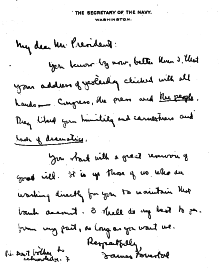 THE SECRETARY OF THE NAVY.
WASHINGTON.
My dear Mr. President:
You know by now, better than I, that
your address of yesterday clicked with all
hands — Congress, the press and the people.
They liked your humility and earnestness and
lack of dramatics.
You start with a great reservoir of
good will. It is up to those of us who are
working directly for you to maintain that
bank account. I shall do my best to do
my part, as long as you want us.
Respectfully
James Forrestal